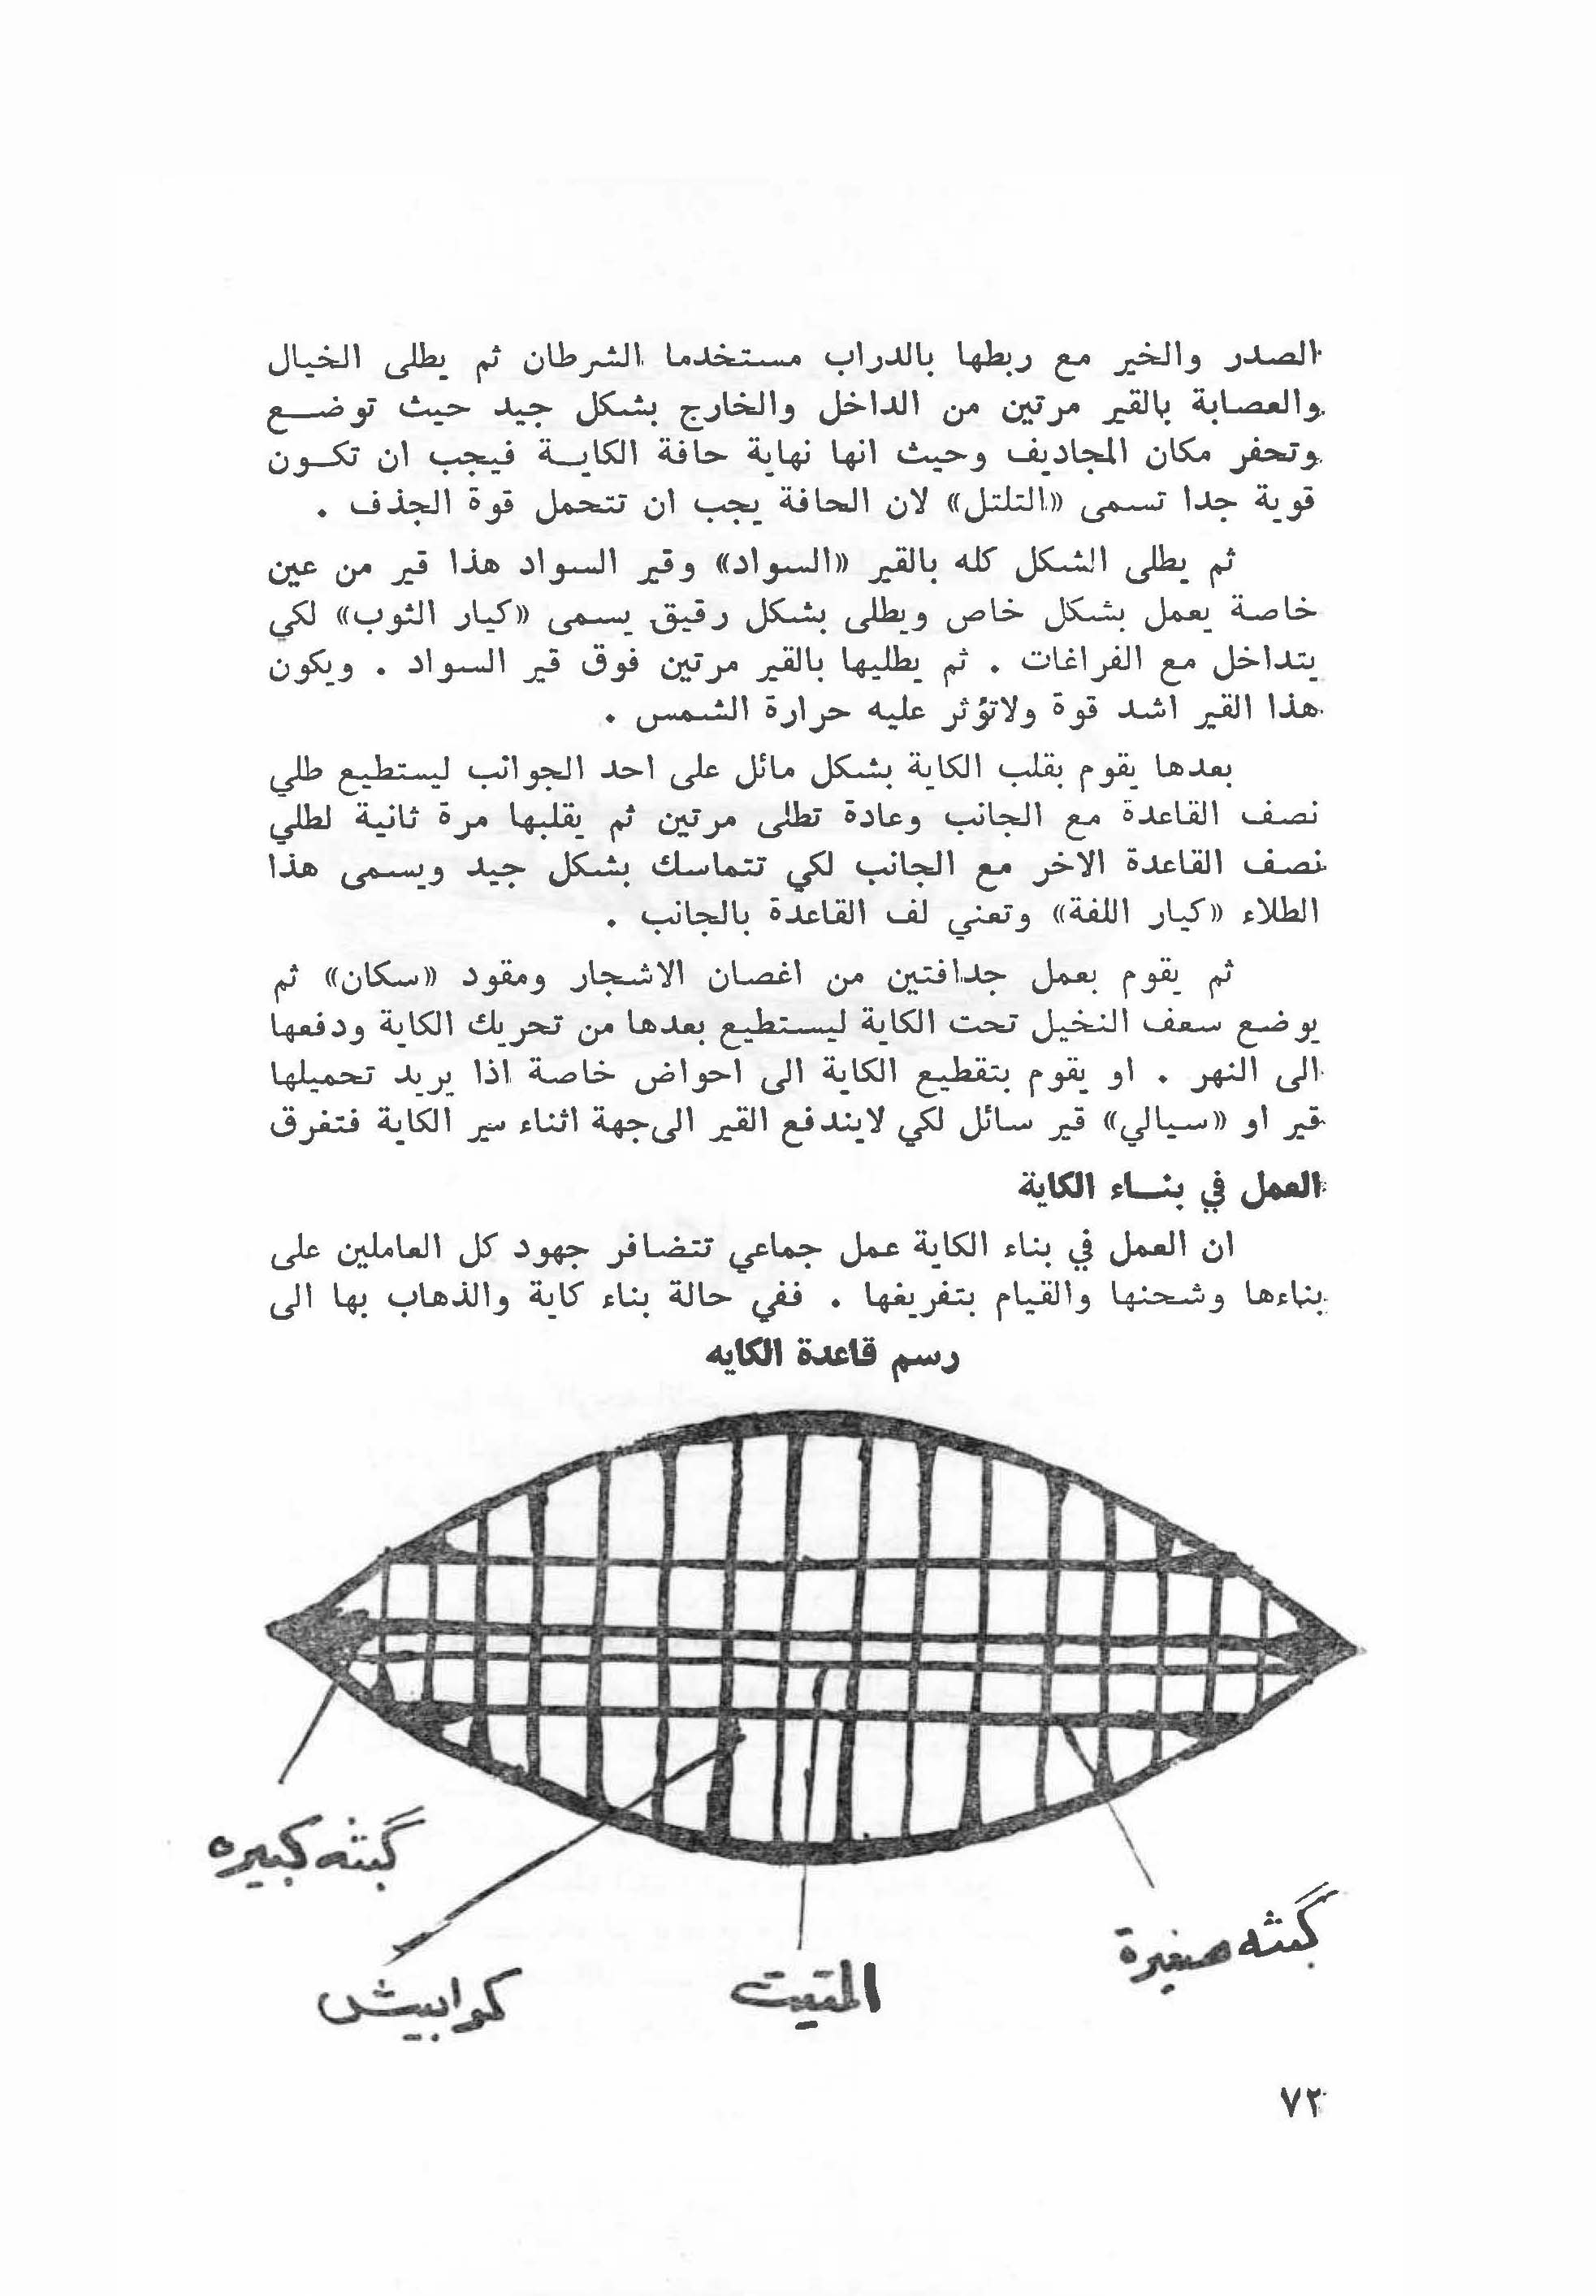 الصدر والخير مع ربطها بالدراب مستخدما الشرطان ثم يطلى الخيال
والعصابة بالقير مرتين من الداخل والخارج بشكل جيد حيث توضـــع
وتحفر مكان المجاديف وحيث انها نهاية حافة الكايــة فيجب ان تكــون
قوية جدا تسمى «التلتل» لان الحافة يجب ان تتحمل قوة الجذف .
ثم يطلى الشكل كله بالقير «السواد» وقير السواد هذا قير من عين
خاصة يعمل بشكل خاص ويطلى بشكل رقيق يسمى «كيار الثوب» لكي
يتداخل مع الفراغات . ثم يطليها بالقير مرتين فوق قير السواد . ويكون
هذا القير اشد قوة ولاتؤثر عليه حرارة الشمس .
بعدها يقوم بقلب الكاية بشكل مائل على احد الجوانب ليستطيع طلي
نصف القاعدة مع الجانب وعادة تطلى مرتين ثم يقلبها مرة ثانية لطلي
نصف القاعدة الاخر مع الجانب لكي تتماسك بشكل جيد ويسمى هذا
الطلاء «كيار اللفة» وتعني لف القاعدة بالجانب .
ثم يقوم بعمل جدافتين من اغصان الاشجار ومقود «سكان» ثم
يوضع سعف النخيل تحت الكاية ليستطيع بعدها من تحريك الكاية ودفعها
الى النهر . او يقوم بتقطيع الكاية الى احواض خاصة اذا يريد تحميلها
قير او «سيالي» قير سائل لكي لايندفع القير الىجهة اثناء سير الكاية فتفرق
العمل في بنــاء الكاية
ان العمل في بناء الكاية عمل جماعي تتضافر جهود كل العاملين على
بناءها وشحنها والقيام بتفريغها . ففي حالة بناء كاية والذهاب بها الى
رسم قاعدة الكايه
گبثه كبيره
گبثه صغيرة
المتيت
كوابيش
٧٢